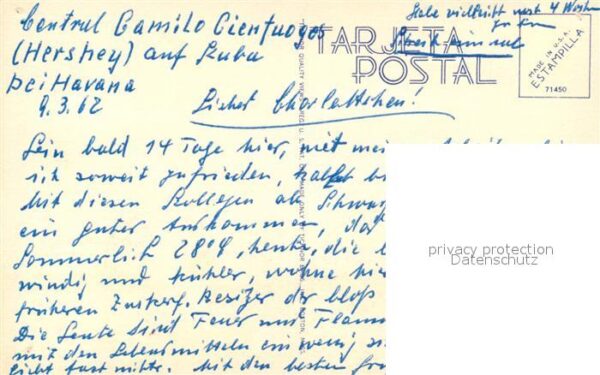 Central Camilo Cienfuegos
(Hershey) auf Kuba
bei Havana
9.3.62
Habe vielleicht noch 4 Woch
TARJETA
POSTAL
MADE IN U.S.A.
ESTAMPILLA
71450
Liebes Charlottchen!
Bin bald 14 Tage hier, mit
ich soweit zufrieden,
Mit diesen Kollegen
ein gutes Auskommen, das
Sommerlich 28°, heute, die
windig und kühler, wohne hier
früheren Zuckerf. Besitzer der bloß
Die Leute sind Feuer und Flamm
mit den Lebensmitteln ein wenig
Mit den besten
privacy protection
Datenschutz